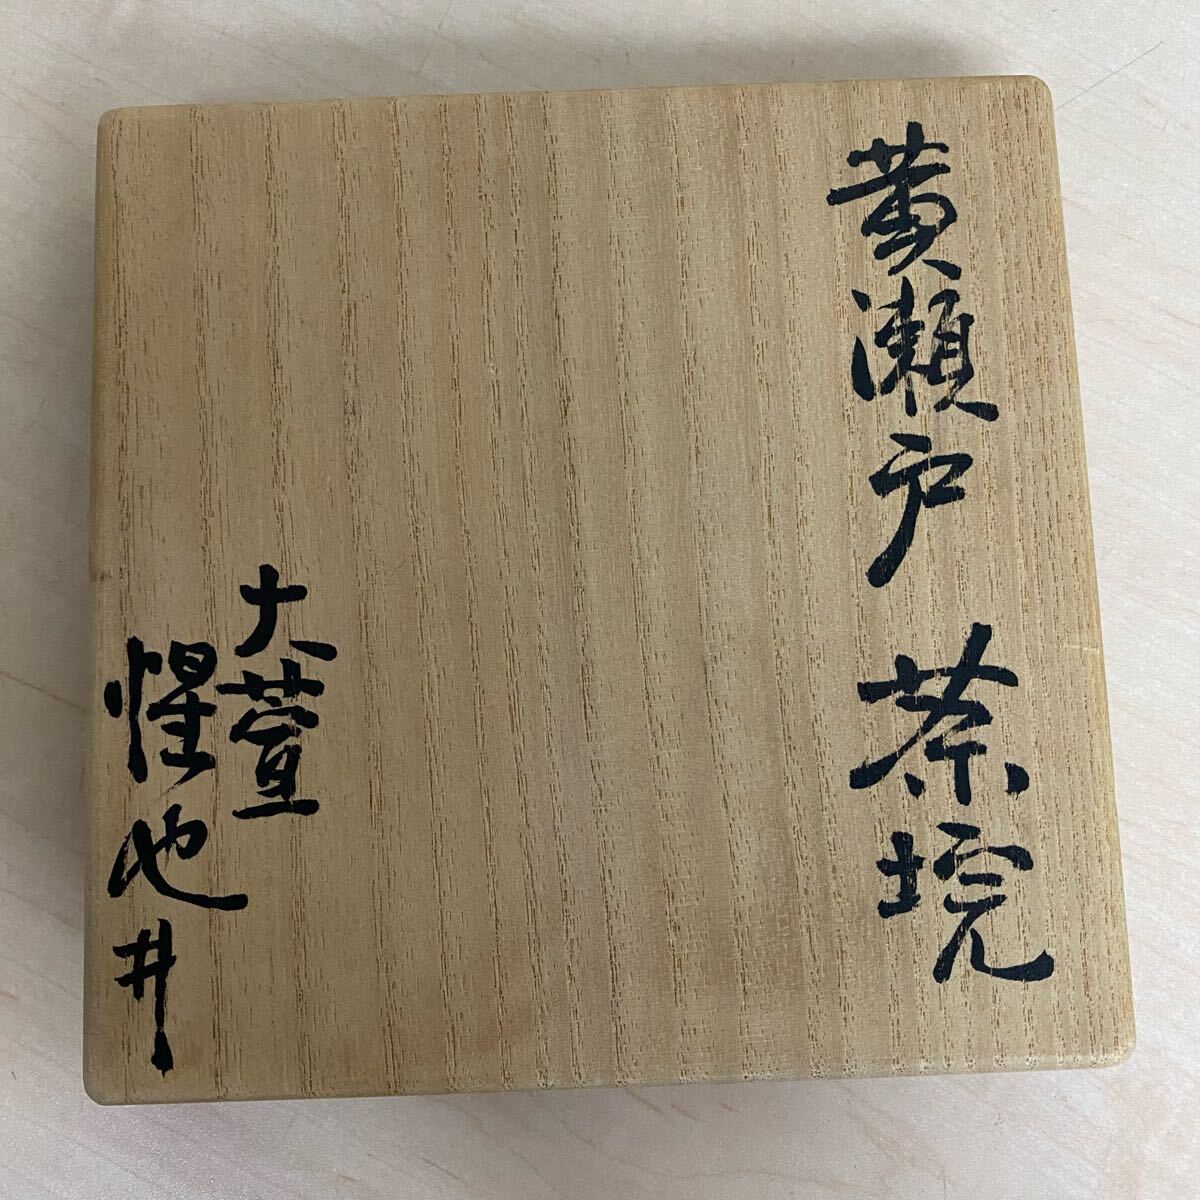 黄瀬戸 茶垸
大萱
惺也井